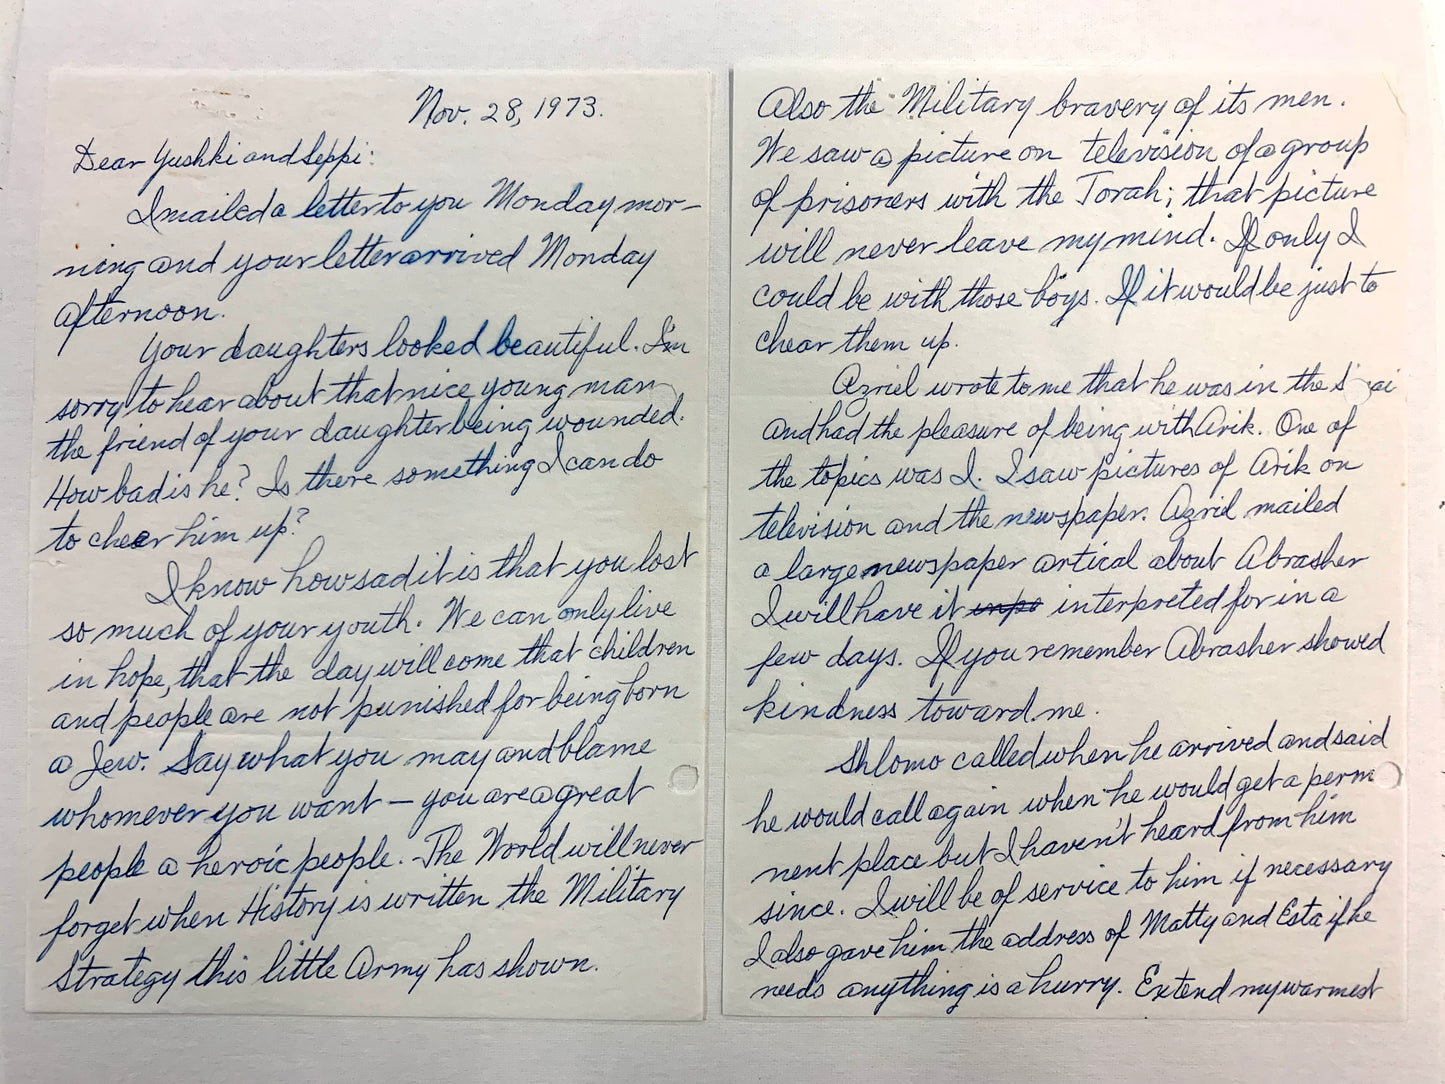 Nov. 28, 1973.
Dear Yushki and Seppi:
I mailed a letter to you Monday mor-
ning and your letter arrived Monday
afternoon.
Your daughters looked beautiful. I'm
sorry to hear about that nice young man
the friend of your daughter being wounded.
How bad is he? Is there something I can do
to cheer him up?
I know how sad it is that you lost
so much of your youth. We can only live
in hope, that the day will come that children
and people are not punished for being born
a Jew. Say what you may and blame
whomever you want — you are a great
people a heroic people. The World will never
forget when History is written the Military
Strategy this little Army has shown.
Also the Military bravery of its men.
We saw a picture on television of a group
of prisoners with the Torah; that picture
will never leave my mind. If only I
could be with those boys. If it would be just to
chear them up.
Azriel wrote to me that he was in the S ai
and had the pleasure of being with Arik. One of
the topics was I. I saw pictures of Arik on
television and the newspaper. Azriel mailed
a large newspaper artical about Abrasher
I will have it inpe interpreted for in a
few days. If you remember Abrasher showed
kindness toward me.
Shlomo called when he arrived and said
he would call again when he would get a perm
nent place but I haven't heard from him
since. I will be of service to him if necessary
I also gave him the address of Matty and Esta if he
needs anything is a hurry. Extend my warmest